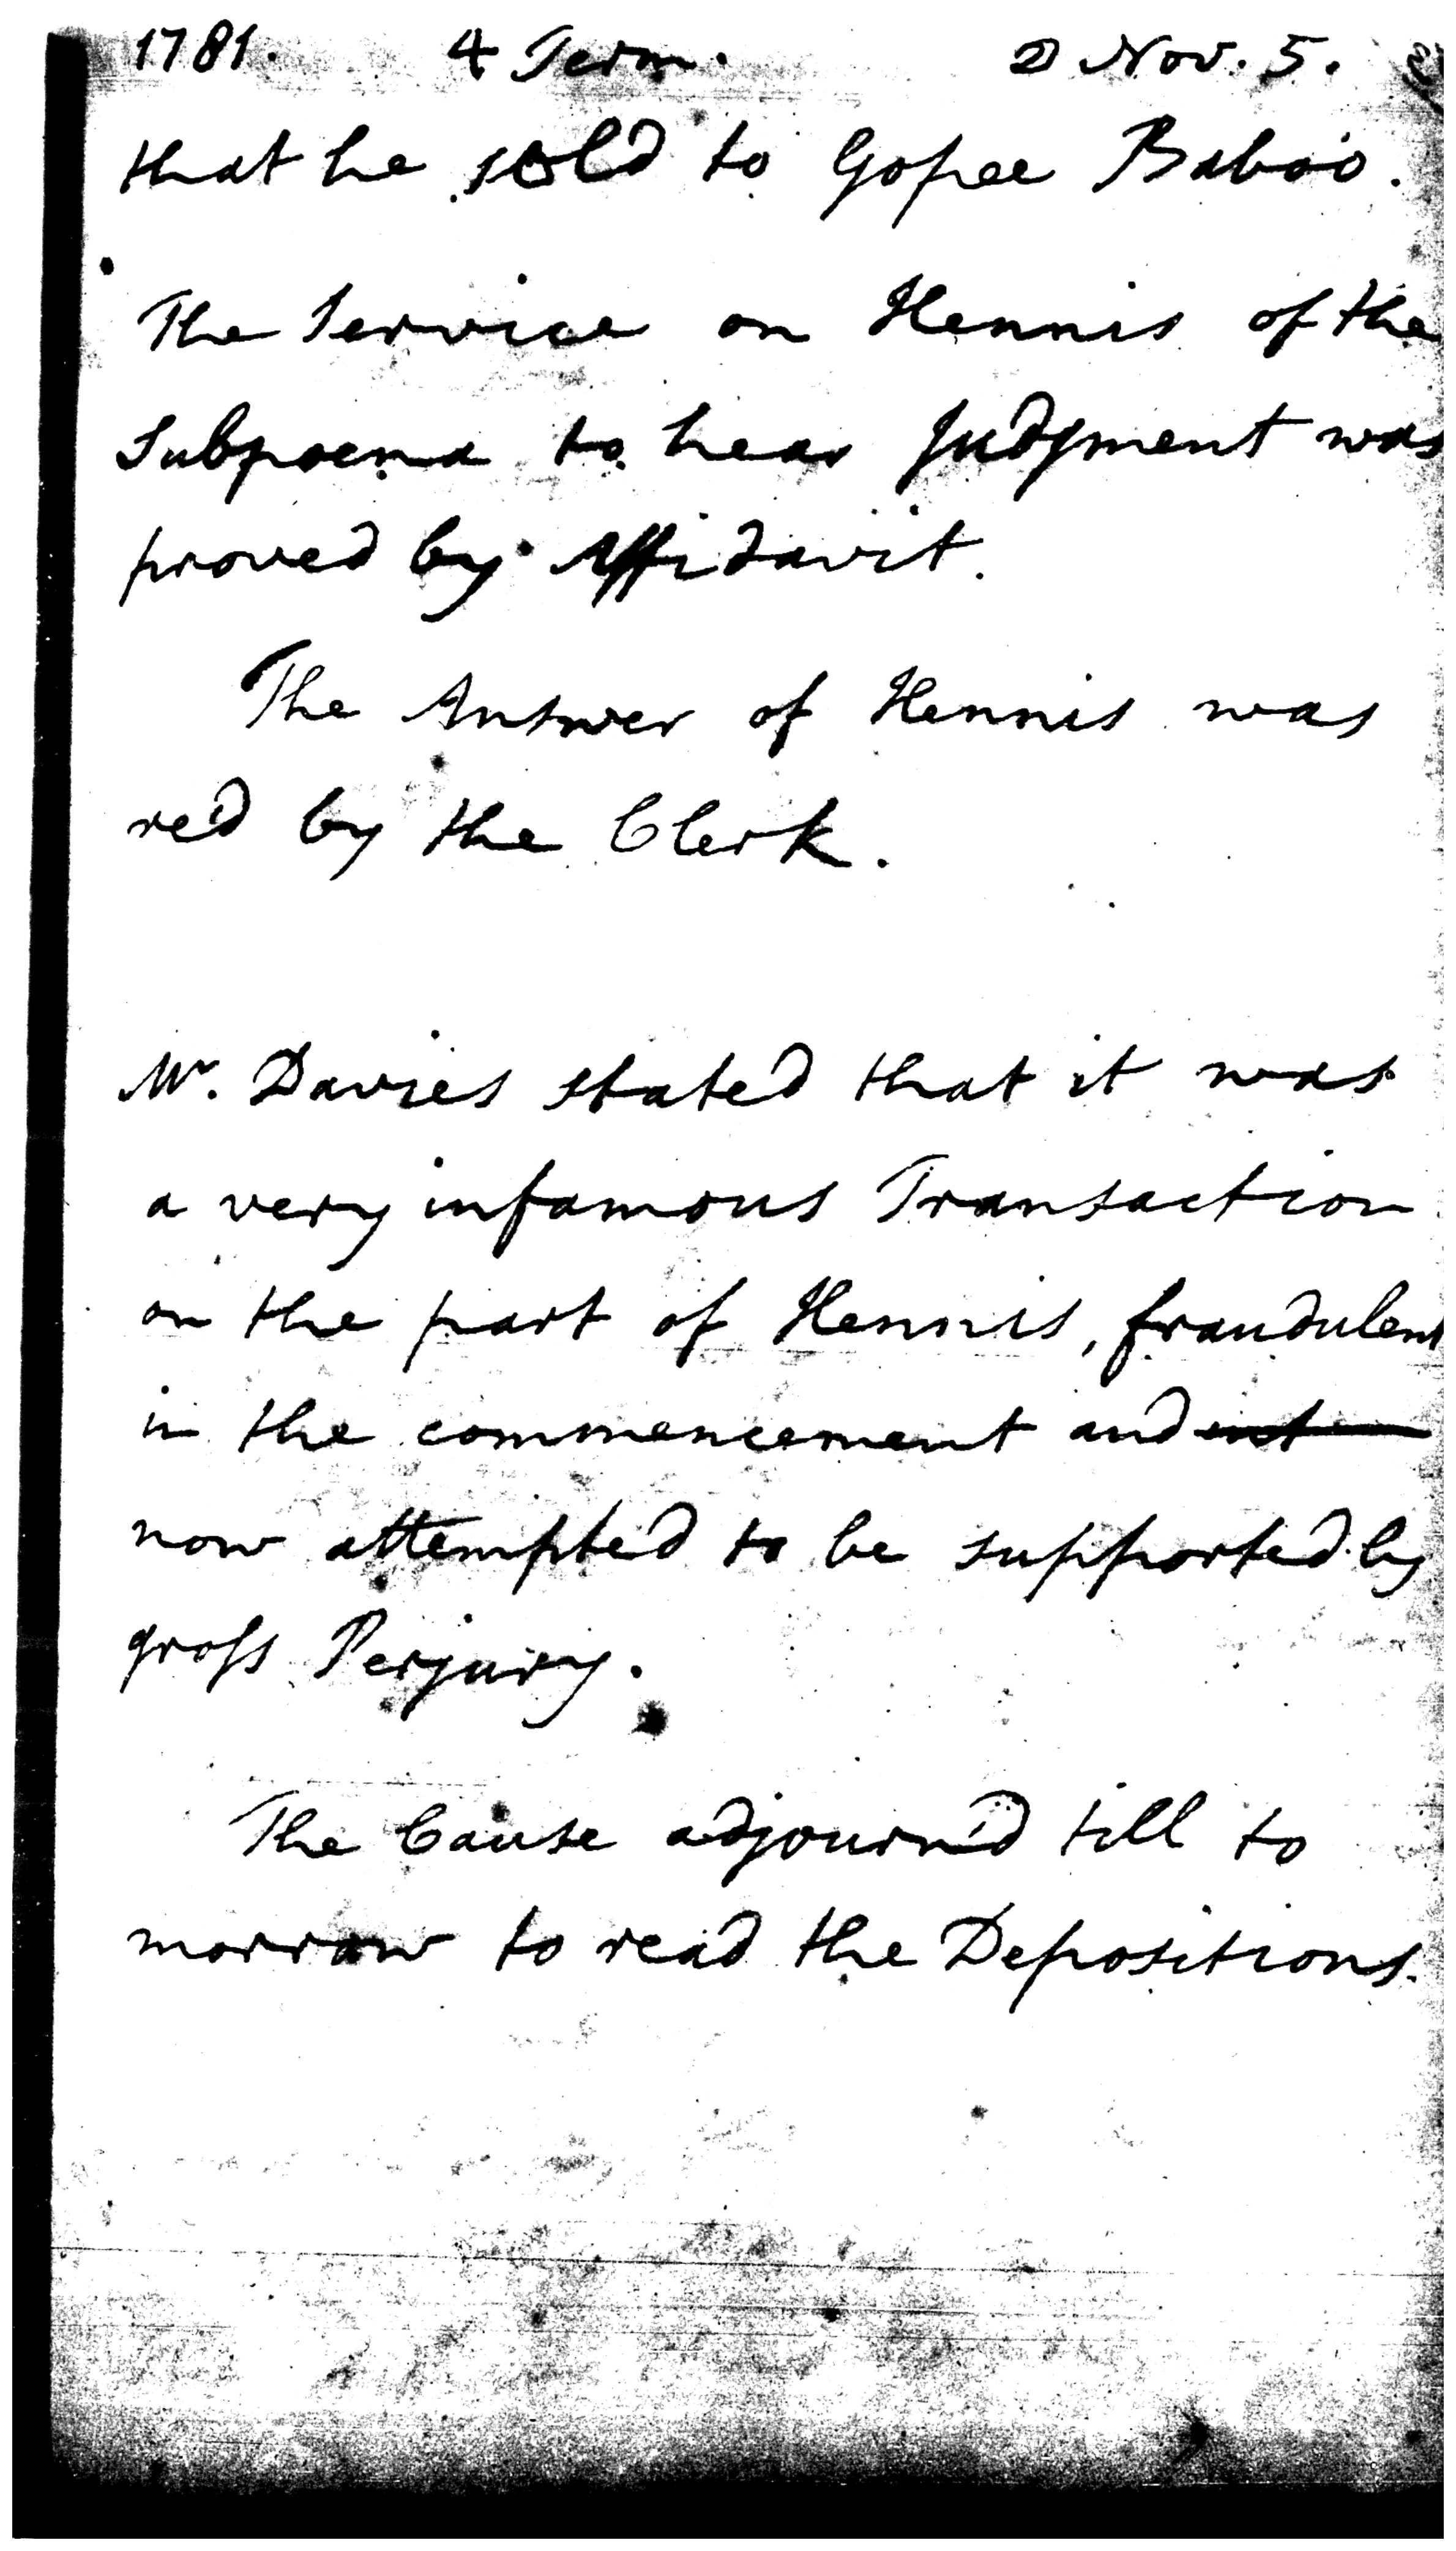 1781. 4 Term. ☽ Nov. 5.
that he sold to Gopee Baboo.
The Service on Hennis of the
Subpoena to hear Judgment was
proved by Affidavit.
The Answer of Hennis was
red by the Clerk.
Mr. Davies stated that it was
a very infamous Transaction
on the part of Hennis, fraudulent
in the commencement and
now attempted to be supported by
gross Perjury.
The Cause adjourn'd till to
morrow to read the Depositions.